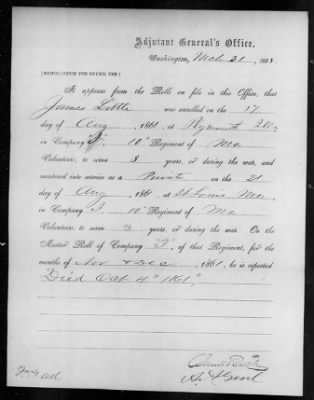 Adjutant General's Office,
Washington, Mch 21, 1868
[MEMORANDUM FOR OFFICE USE]
It appears from the Roll on file in this Office, that
James Little was enrolled on the 17
day of Aug, 1861, at Plymouth
in Company 10" Regiment of Mo
Volunteers, to serve 3 years, or during the war, and
mustered into service as a Private on the 21
day of Aug, 1861 at St Louis Mo,
in Company 10" Regiment of Mo
Volunteers, to serve 3 years, or during the war. On the
Muster Roll of Company of that Regiment, for the
months of Nov & Dec, 1861, he is reported
Died Oct 4" 1861".
A. A. Genl